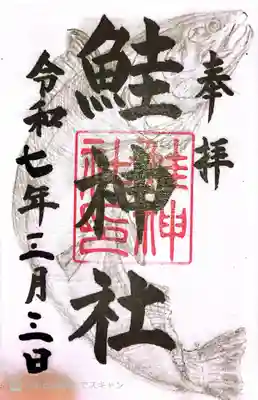 奉拝
鮭神社
鮭神社印
令和七年三月三日
でスキャン